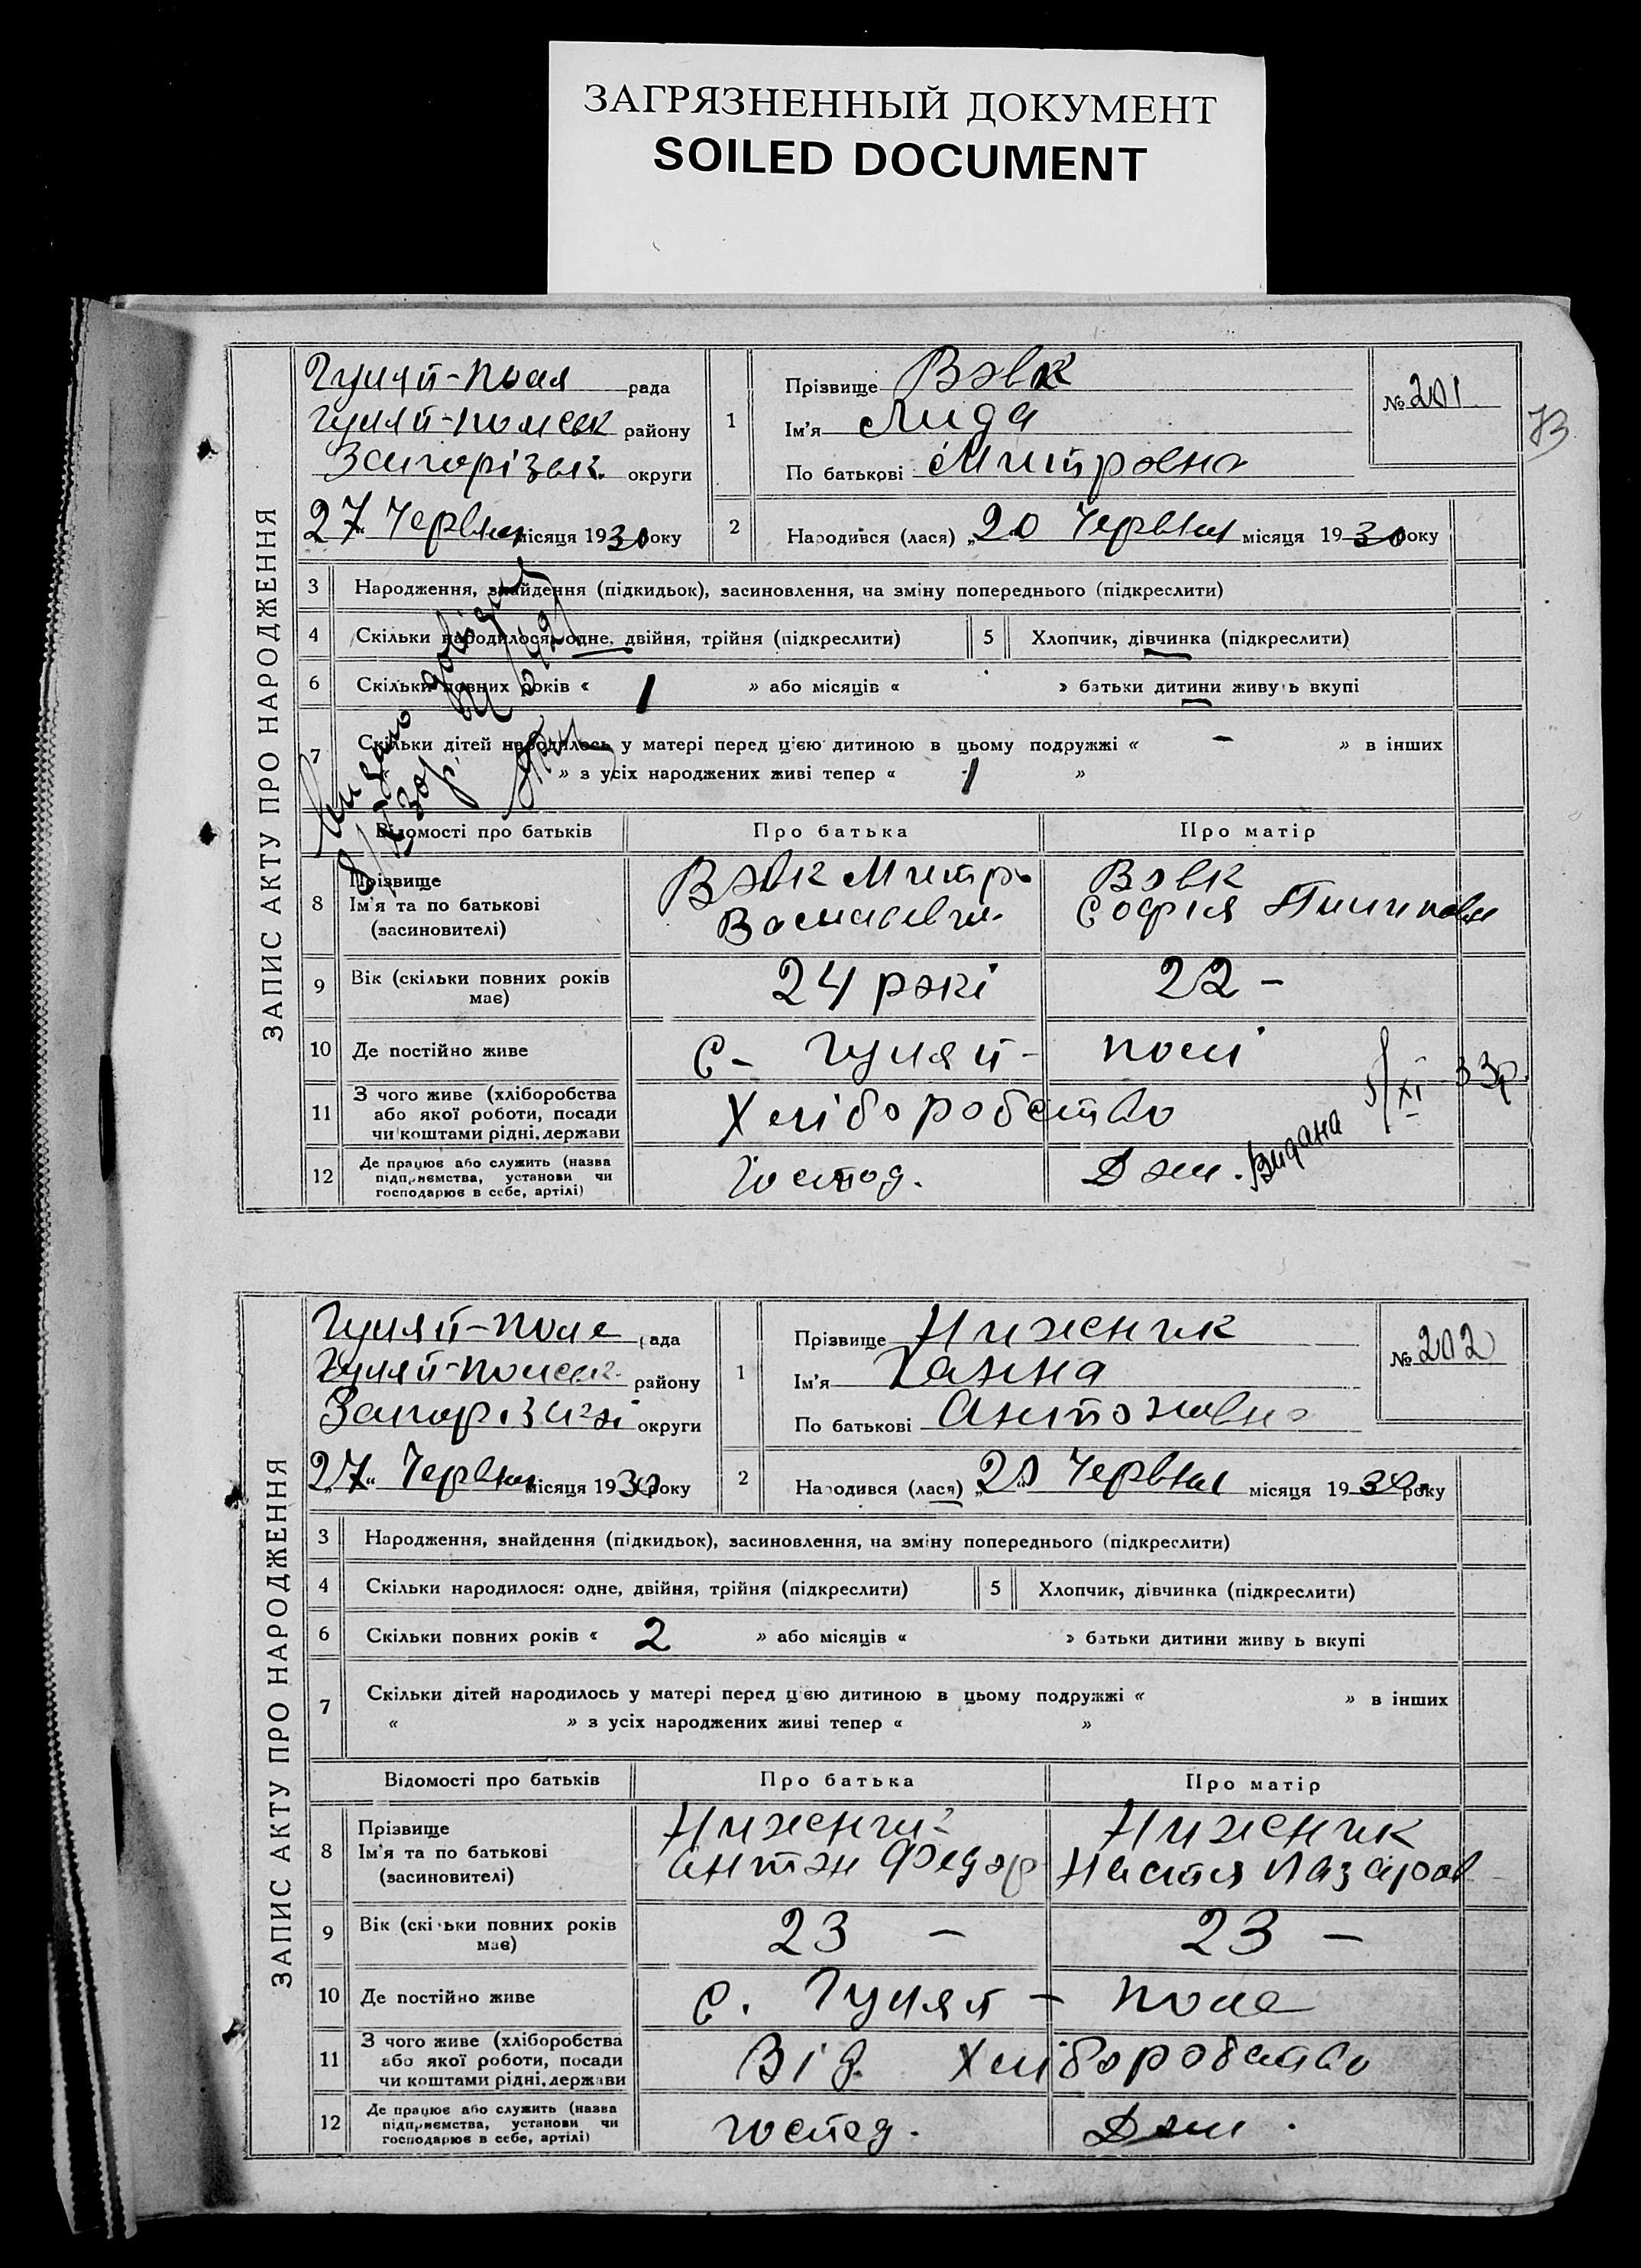 ЗАГРЯЗНЕННЫЙ ДОКУМЕНТ
SOILED DOCUMENT
73
ЗАПИС АКТУ ПРО НАРОДЖЕННЯ
Гуляй-Поля рада
Гуляй-польськ району
Запорізьк. округи
27 Червня місяця 1930 року
1 Прізвище Вовк
Ім'я Лида
По батькові Митровна
№ 201
2 Народився (лася) „20 Червня місяця 1930 року
3 Народження, знайдення (підкидьок), засиновлення, на зміну попереднього (підкреслити)
4 Скільки народилося: одне, двійня, трійня (підкреслити) 5 Хлопчик, дівчинка (підкреслити)
6 Скільки повних років « 1 » або місяців « » батьки дитини живу ь вкупі
7 Скільки дітей народилось у матері перед цією дитиною в цьому подружжі « – » в інших
» з усіх народжених живі тепер « 1 »
Відомості про батьків Про батька Про матір
8 Прізвище
Ім'я та по батькові
(засиновителі)
Вовк Митро
Вовк
Софія
9 Вік (скільки повних років
має)
24 рокі 22 –
10 Де постійно живе с– Гуляй- полі
11 З чого живе (хліборобства
або якої роботи, посади
чи коштами рідні, держави
Хліборобство
12 Де працює або служить (назва
підприємства, установи чи
господарює в себе, артілі)
Господ. Дом.
Видана
XI 33р.
ЗАПИС АКТУ ПРО НАРОДЖЕННЯ
Гуляй-Поле рада
Гуляй-польськ. району
округи
27 „ Червня місяця 1930 року
1 Прізвище Ниженик
Ім'я Ганна
По батькові Антоновна
№ 202
2 Народився (лася) „20 Червня місяця 1930 року
3 Народження, знайдення (підкидьок), засиновлення, на зміну попереднього (підкреслити)
4 Скільки народилося: одне, двійня, трійня (підкреслити) 5 Хлопчик, дівчинка (підкреслити)
6 Скільки повних років « 2 » або місяців « » батьки дитини живу ь вкупі
7 Скільки дітей народилось у матері перед цією дитиною в цьому подружжі « » в інших
« » з усіх народжених живі тепер « »
Відомості про батьків Про батька Про матір
8 Прізвище
Ім'я та по батькові
(засиновителі)
Ниженик
Антон Федор
Ниженик
Настя Лазаров
9 Вік (скільки повних років
має)
23 – 23 –
10 Де постійно живе с. Гуляй – поле
11 З чого живе (хліборобства
або якої роботи, посади
чи коштами рідні, держави
Від Хліборобство
12 Де працює або служить (назва
підприємства, установи чи
господарює в себе, артілі)
господ. Дом.